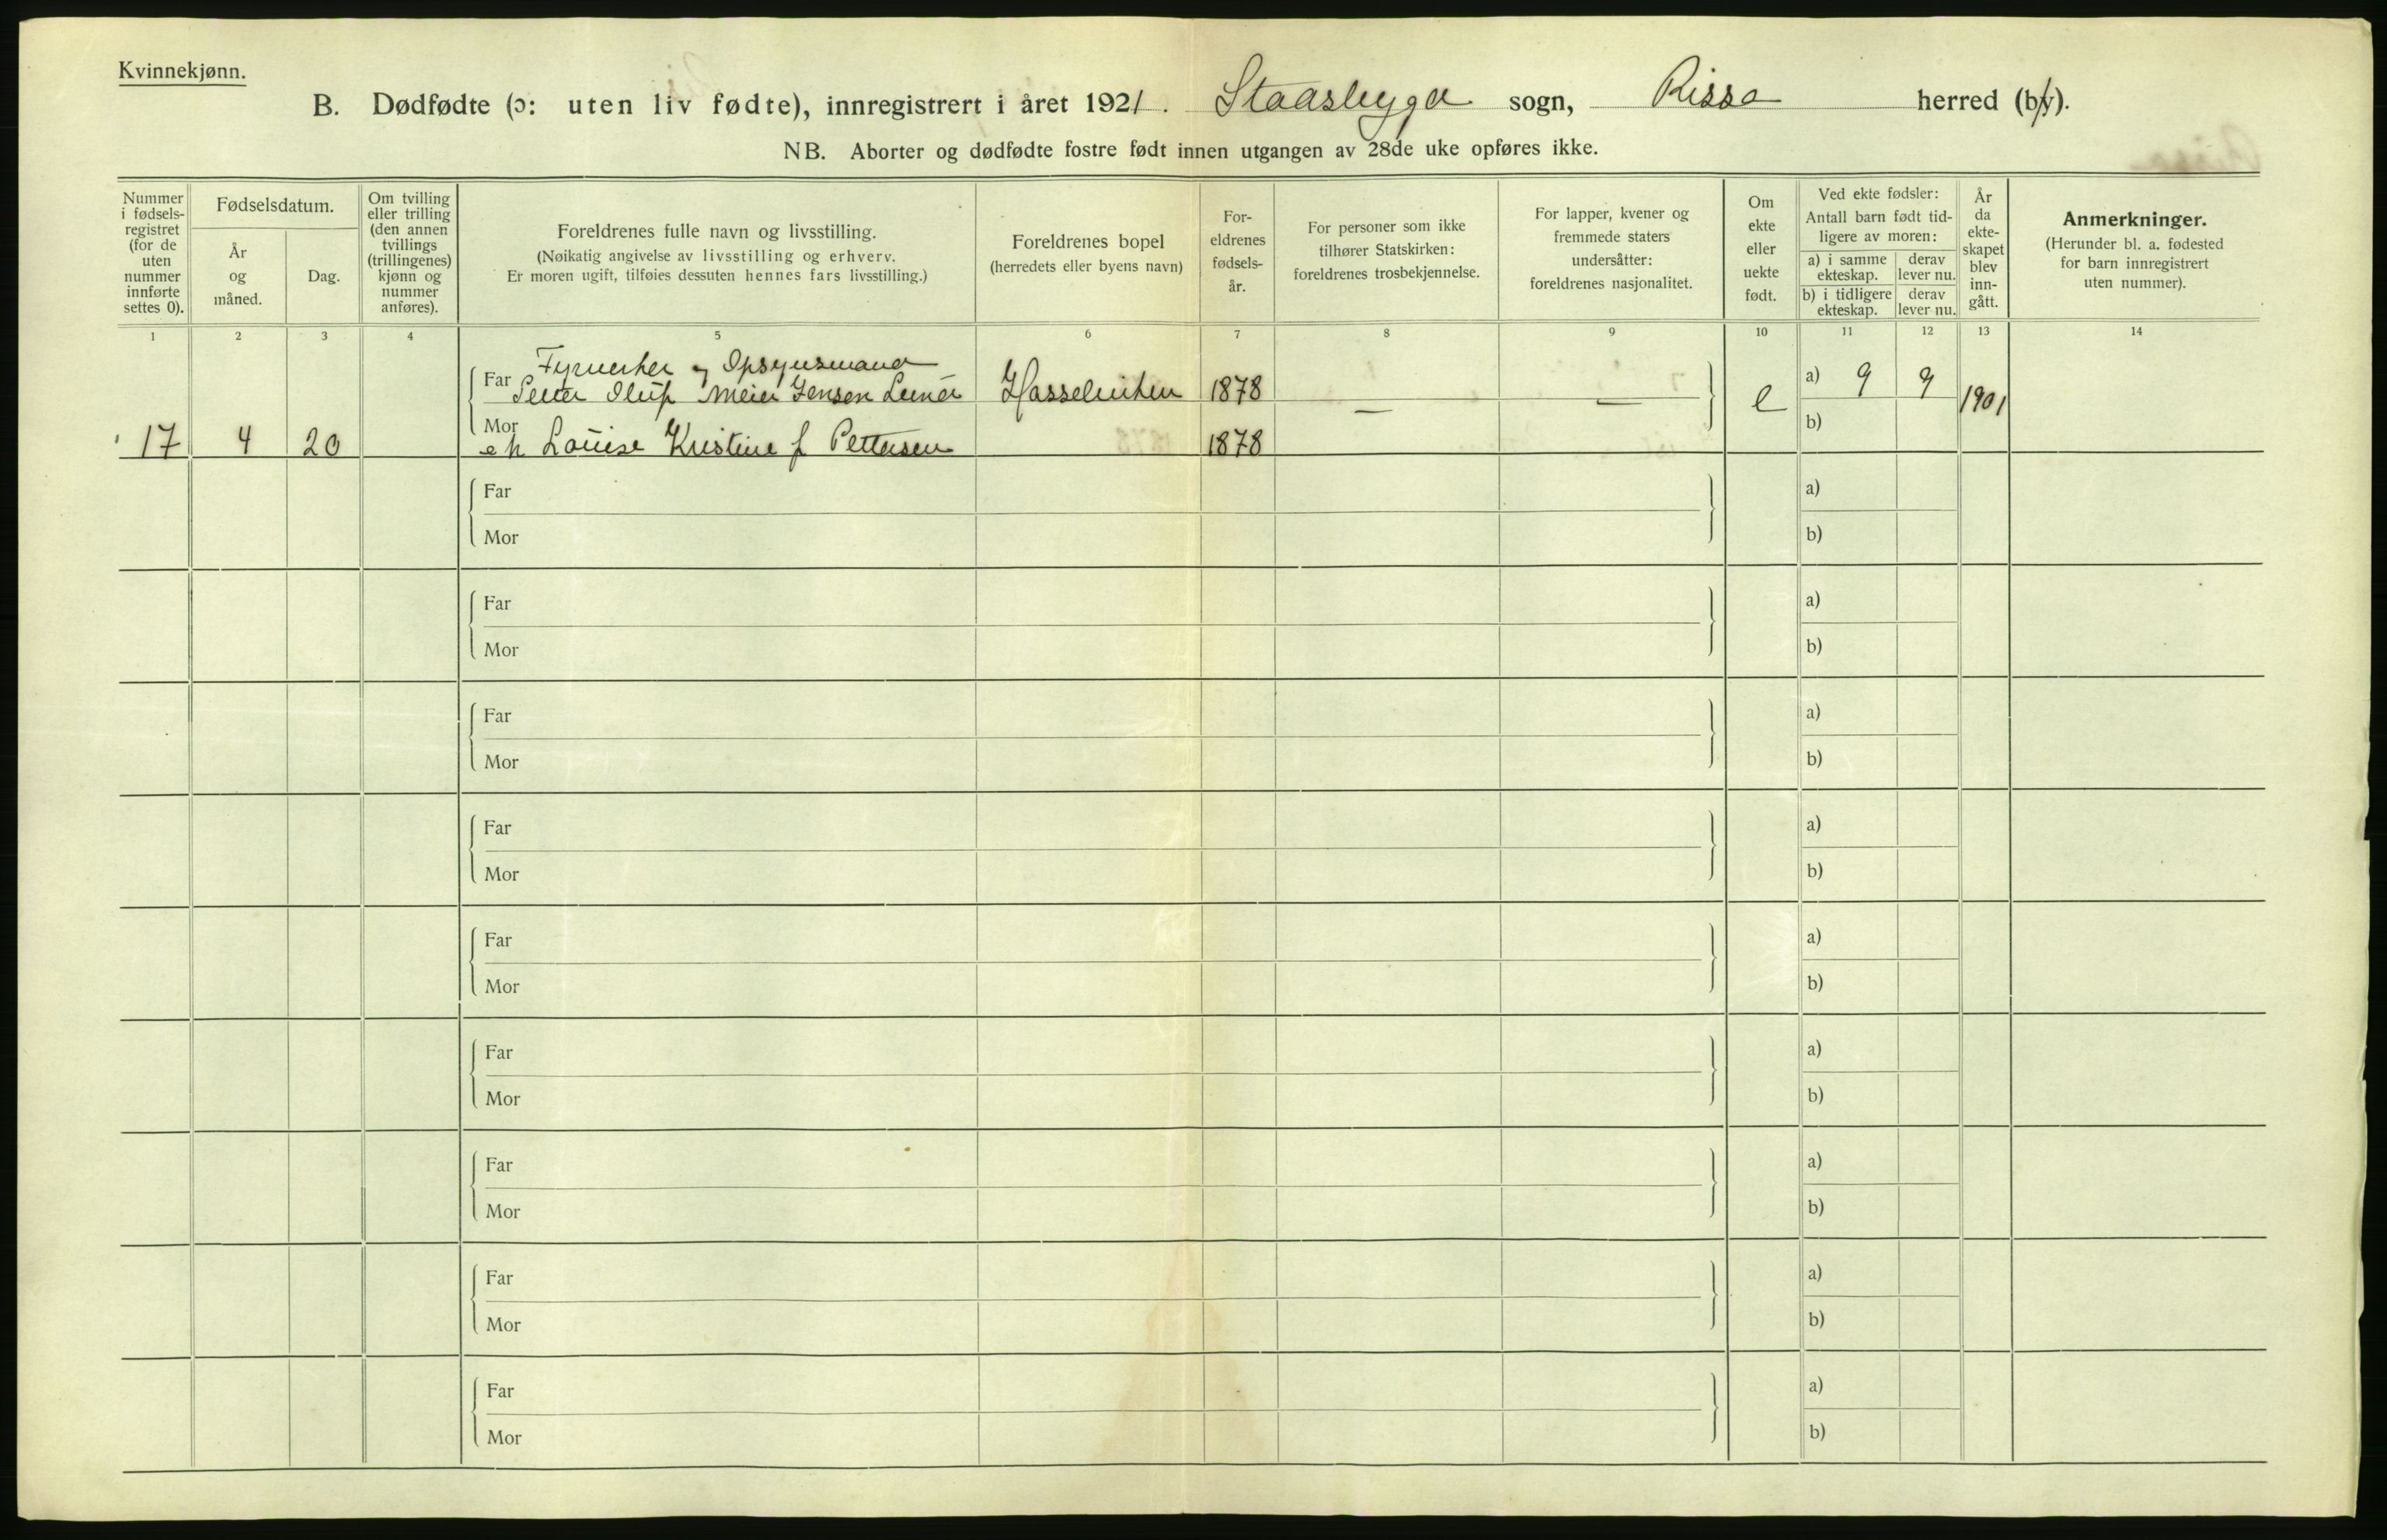 Kvinnekjønn.
B. Dødfødte (ɔ: uten liv fødte), innregistrert i året 1921. Staasbygd sogn, Rissa herred (by).
NB. Aborter og dødfødte fostre født innen utgangen av 28de uke opføres ikke.
Nummer i fødsels-registret (for de uten nummer innførte settes 0).
Fødselsdatum.
År og måned.
Dag.
Om tvilling eller trilling (den annen tvillings (trillingenes) kjønn og nummer anføres).
Foreldrenes fulle navn og livsstilling.
(Nøikatig angivelse av livsstilling og erhverv.
Er moren ugift, tilføies dessuten hennes fars livsstilling.)
Foreldrenes bopel
(herredets eller byens navn)
For-eldrenes fødsels-år.
For personer som ikke tilhører Statskirken: foreldrenes trosbekjennelse.
For lapper, kvener og fremmede staters undersåtter: foreldrenes nasjonalitet.
Om ekte eller uekte født.
Ved ekte fødsler:
Antall barn født tid-ligere av moren:
a) i samme ekteskap.
derav lever nu.
b) i tidligere ekteskap.
derav lever nu.
År da ekte-skapet blev inn-gått.
Anmerkninger.
(Herunder bl. a. fødested for barn innregistrert uten nummer).
1 2 3 4 5 6 7 8 9 10 11 12 13 14
Opsynsmand
Far Meier Jensen 1878 — — e a) 9 9 1901
17 4 20 Mor Louise Kristine f Pettersen 1878 b)
Far a)
Mor b)
Far a)
Mor b)
Far a)
Mor b)
Far a)
Mor b)
Far a)
Mor b)
Far a)
Mor b)
Far a)
Mor b)
Far a)
Mor b)
Far a)
Mor b)